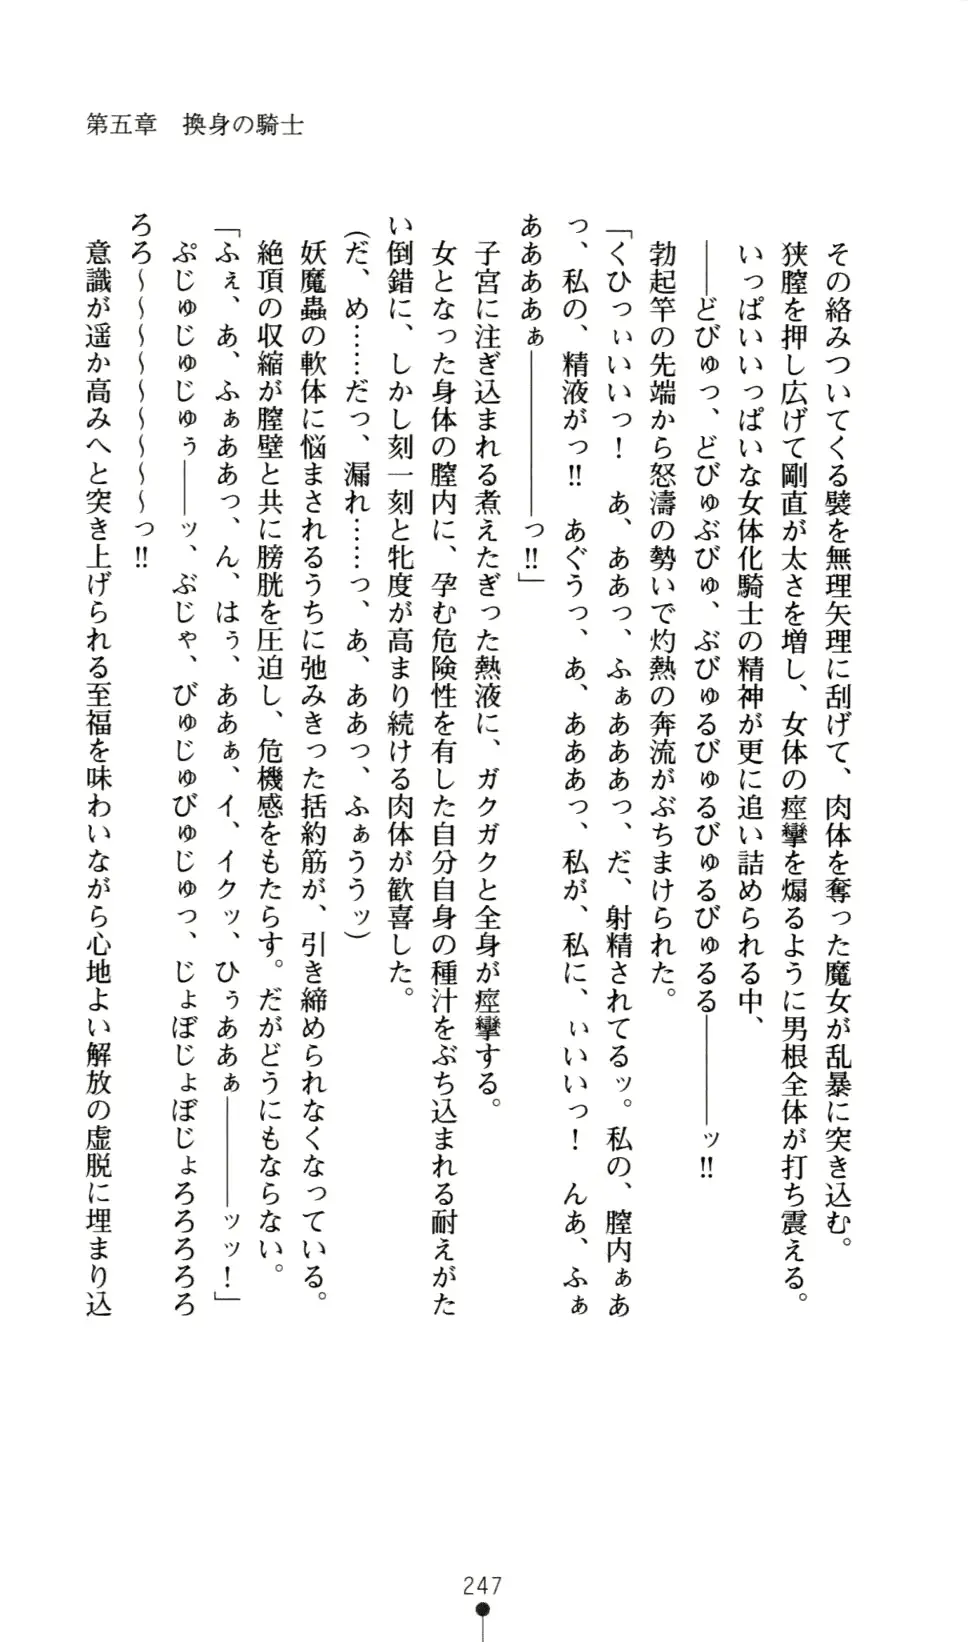 第五章　換身の騎士
その絡みついてくる襞を無理矢理に刮げて、肉体を奪った魔女が乱暴に突き込む。
狭膣を押し広げて剛直が太さを増し、女体の痙攣を煽るように男根全体が打ち震える。
いっぱいいいっぱいな女体化騎士の精神が更に追い詰められる中、
――どびゅっ、どびゅぶびゅ、ぶびゅるびゅるびゅるびゅるる――――ッ!!
勃起竿の先端から怒濤の勢いで灼熱の奔流がぶちまけられた。
「くひっぃいいっ！　あ、ああっ、ふぁあああっ、だ、射精されてるッ。私の、膣内ぁあ
っ、私の、精液がっ!!　あぐうっ、あ、あああっ、私が、私に、ぃいいっ！　んあ、ふぁ
ああああぁ――――――っ!!」
子宮に注ぎ込まれる煮えたぎった熱液に、ガクガクと全身が痙攣する。
女となった身体の膣内に、孕む危険性を有した自分自身の種汁をぶち込まれる耐えがた
い倒錯に、しかし刻一刻と牝度が高まり続ける肉体が歓喜した。
(だ、め……だっ、漏れ……っ、あ、ああっ、ふぁううッ)
妖魔蟲の軟体に悩まされるうちに弛みきった括約筋が、引き締められなくなっている。
絶頂の収縮が膣壁と共に膀胱を圧迫し、危機感をもたらす。だがどうにもならない。
「ふぇ、あ、ふぁああっ、ん、はぅ、ああぁ、イ、イクッ、ひぅああぁ――――ッッ！」
ぷじゅじゅじゅぅ――ッ、ぶじゃ、びゅじゅびゅじゅっ、じょぼじょぼじょろろろろろ
ろろ～～～～～～～～～っ!!
意識が遥か高みへと突き上げられる至福を味わいながら心地よい解放の虚脱に埋まり込
247